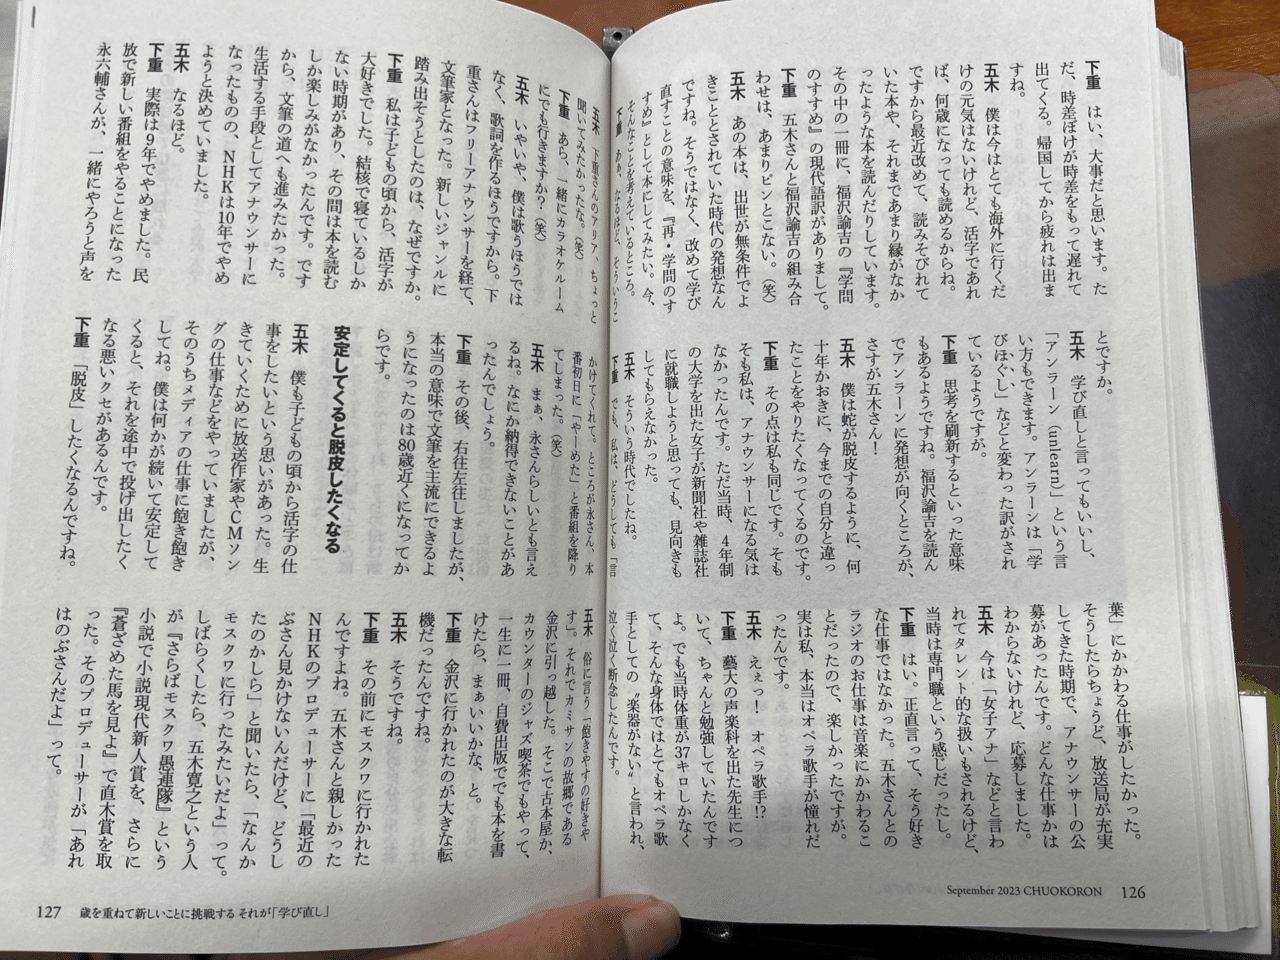 下重　はい、大事だと思います。た
だ、時差ぼけが時差をもって遅れて
出てくる。帰国してから疲れは出ま
すね。
五木　僕は今はとても海外に行くだ
けの元気はないけれど、活字であれ
ば、何歳になっても読めるからね。
ですから最近改めて、読みそびれて
いた本や、それまであまり縁がなか
ったような本を読んだりしています。
その中の一冊に、福沢諭吉の『学問
のすすめ』の現代語訳がありまして。
下重　五木さんと福沢諭吉の組み合
わせは、あまりピンとこない。(笑)
五木　あの本は、出世が無条件でよ
きこととされていた時代の発想なん
ですね。そうではなく、改めて学び
直すことの意味を、『再・学問のす
すめ』として本にしてみたい。今、
そんなことを考えているところ。
下重　なるほど、そういうこ
とですか。
五木　学び直しと言ってもいいし、
「アンラーン（unlearn）」という言
い方もできます。アンラーンは「学
びほぐし」などと変わった訳がされ
ているようですが。
下重　思考を刷新するといった意味
もあるようですね。福沢諭吉を読ん
でアンラーンに発想が向くところが、
さすが五木さん！
五木　僕は蛇が脱皮するように、何
十年かおきに、今までの自分と違っ
たことをやりたくなってくるのです。
下重　その点は私も同じです。そも
そも私は、アナウンサーになる気は
なかったんです。ただ当時、４年制
の大学を出た女子が新聞社や雑誌社
に就職しようと思っても、見向きも
してもらえなかった。
五木　そういう時代でしたね。
下重　でも、私は、どうしても「言
葉」にかかわる仕事がしたかった。
そうしたらちょうど、放送局が充実
してきた時期で、アナウンサーの公
募があったんです。どんな仕事かは
わからないけれど、応募しました。
五木　今は「女子アナ」などと言わ
れてタレント的な扱いもされるけど、
当時は専門職という感じだったし。
下重　はい。正直言って、そう好き
な仕事ではなかった。五木さんとの
ラジオのお仕事は音楽にかかわるこ
とだったので、楽しかったですが。
実は私、本当はオペラ歌手が憧れだ
ったんです。
五木　えぇっ！　オペラ歌手!?
下重　藝大の声楽科を出た先生につ
いて、ちゃんと勉強していたんです
よ。でも当時体重が37キロしかなく
て、そんな身体ではとてもオペラ歌
手としての〝楽器がない〟と言われ、
泣く泣く断念したんです。
September 2023 CHUOKORON　126
五木　下重さんのアリア、ちょっと
聞いてみたかったな。(笑)
下重　あら、一緒にカラオケルーム
にでも行きますか？(笑)
五木　いやいや、僕は歌うほうでは
なく、歌詞を作るほうですから。下
重さんはフリーアナウンサーを経て、
文筆家となった。新しいジャンルに
踏み出そうとしたのは、なぜですか。
下重　私は子どもの頃から、活字が
大好きでした。結核で寝ているしか
ない時期があり、その間は本を読む
しか楽しみがなかったんです。です
から、文筆の道へも進みたかった。
生活する手段としてアナウンサーに
なったものの、NHKは10年でやめ
ようと決めていました。
五木　なるほど。
下重　実際は９年でやめました。民
放で新しい番組をやることになった
永六輔さんが、一緒にやろうと声を
かけてくれて。ところが永さん、本
番初日に「やーめた」と番組を降り
てしまった。(笑)
五木　まぁ、永さんらしいとも言え
るね。なにか納得できないことがあ
ったんでしょう。
下重　その後、右往左往しましたが、
本当の意味で文筆を主流にできるよ
うになったのは80歳近くになってか
らです。
安定してくると脱皮したくなる
五木　僕も子どもの頃から活字の仕
事をしたいという思いがあった。生
きていくために放送作家やCMソン
グの仕事などをやっていましたが、
そのうちメディアの仕事に飽き飽き
してね。僕は何かが続いて安定して
くると、それを途中で投げ出したく
なる悪いクセがあるんです。
下重　「脱皮」したくなるんですね。
五木　俗に言う「飽きやすの好きや
す」。それでカミサンの故郷である
金沢に引っ越した。そこで古本屋か、
カウンターのジャズ喫茶でもやって、
一生に一冊、自費出版ででも本を書
けたら、まぁいいかな、と。
下重　金沢に行かれたのが大きな転
機だったんですね。
五木　そうですね。
下重　その前にモスクワに行かれた
んですよね。五木さんと親しかった
NHKのプロデューサーに「最近の
ぶさん見かけないんだけど、どうし
たのかしら」と聞いたら、「なんか
モスクワに行ったみたいだよ」って。
しばらくしたら、五木寛之という人
が『さらばモスクワ愚連隊』という
小説で小説現代新人賞を、さらに
『蒼ざめた馬を見よ』で直木賞を取
った。そのプロデューサーが「あれ
はのぶさんだよ」って。
127　歳を重ねて新しいことに挑戦する それが「学び直し」